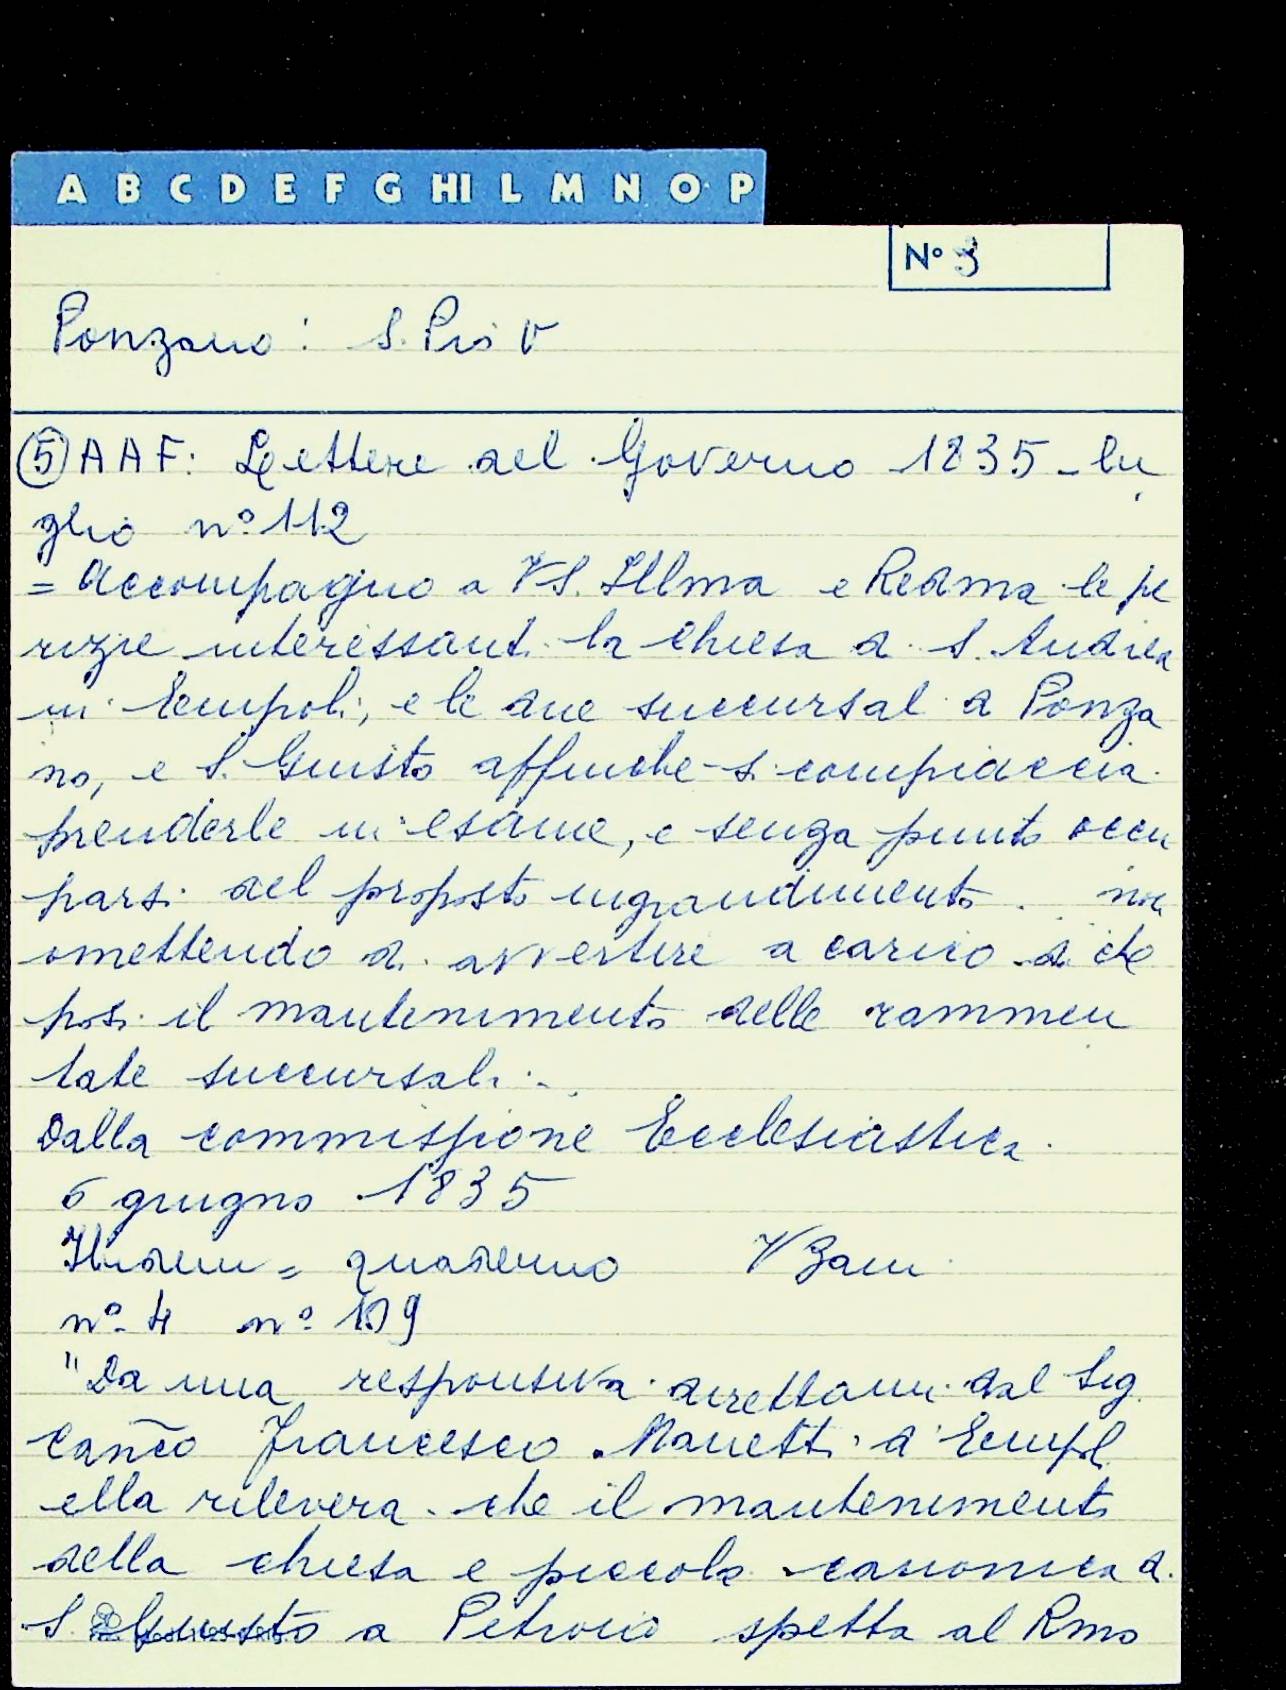 A B C D E F G HI L M N O P
N° 3
Ponzano: S. Pio V
(5) AAF: Lettere del Governo 1835 - lu
glio n° 112
= Accompagno a VS. Illma e Redma le pe
rizie interessanti la Chiesa di S. Andrea
in Empoli, e le due succursali di Ponza
no, e S. Giusto affinché si compiaccia
prenderle in esame, e senza punto occu
parsi del proposto ingrandimento . . non
omettendo di avvertire a carico di che
posi il mantenimento delle rammen
tate succursali . .
Dalla commissione Ecclesiastica
6 giugno 1835
Ibidem = quaderno V Bani
n° 4 n° 109
"Da una responsiva direttami dal Sig.
Canco Francesco Manetti di Empoli
ella rileverà che il mantenimento
della chiesa e piccola canonica di
S. Giusto a Petroio spetta al Rmo